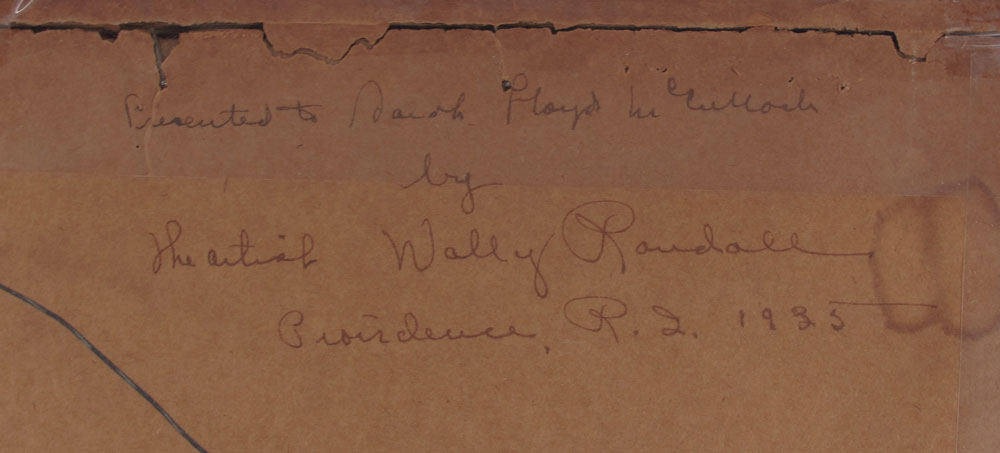 Presented to Sarah Floyd McCulloch
by
The artist Wally Randall
Providence, R.I. 1935